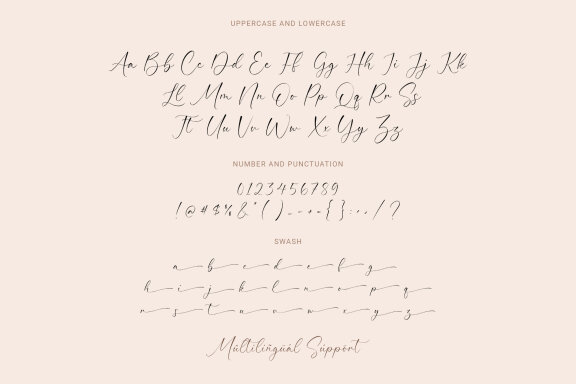 UPPERCASE AND LOWERCASE
Aa Bb Cc Dd Ee Ff Gg Hh Ii Jj Kk
Ll Mm Nn Oo Pp Qq Rr Ss
Tt Uu Vv Ww Xx Yy Zz
NUMBER AND PUNCTUATION
0123456789
! @ # $ % & * ( ) - _ + = { } : ; , . / ?
SWASH
a b c d e f g
h i j k l n o p q
r s t u v w x y z
Mültilingüál Súppórt